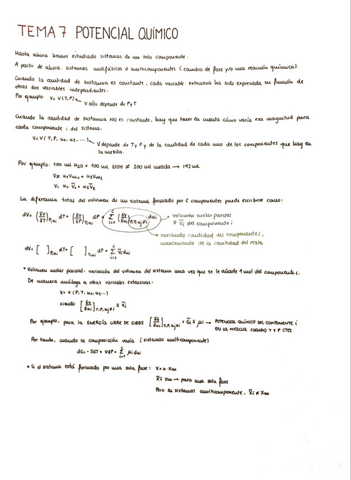 TEMA 7 POTENCIAL QUÍMICO
Hasta ahora hemos estudiado sistemas de un solo componente.
A partir de ahora: sistemas multifásicos o multicomponentes (cambio de fase y/o una reacción química).
Cuando la cantidad de sustancia es constante, cada variable extensiva ha sido expresada en función de
otras dos variables independientes.
Por ejemplo: V = V(T,P)
V sólo depende de P y T
Cuando la cantidad de sustancia NO es constante, hay que tener en cuenta cómo varía esa magnitud para
cada componente i del sistema.
V = V(T, P, n₁, n₂, ...)
V depende de T y P y de la cantidad de cada uno de los componentes que hay en
la mezcla.
Por ejemplo: 100 ml H₂O + 100 ml EtOH ≠ 200 ml mezcla → 192 ml
La diferencia total del volumen de un sistema formado por C componentes puede escribirse como:
volumen molar parcial
del componente i
variando cantidad del componente i,
manteniendo la cantidad del resto
* Volumen molar parcial: variación del volumen del sistema una vez que se le añade 1 mol del componente i.
De manera análoga a otras variables extensivas:
X = X(P, T, n₁, n₂ ...)
siendo
Por ejemplo, para la ENERGÍA LIBRE DE GIBBS
POTENCIAL QUÍMICO DEL COMPONENTE i
EN LA MEZCLA CUANDO T Y P CTES
Por tanto, cuando la composición varía (sistemas multicomponente)
* Si el sistema está formado por una sola fase:
para una sola fase
Pero en sistemas multicomponente,